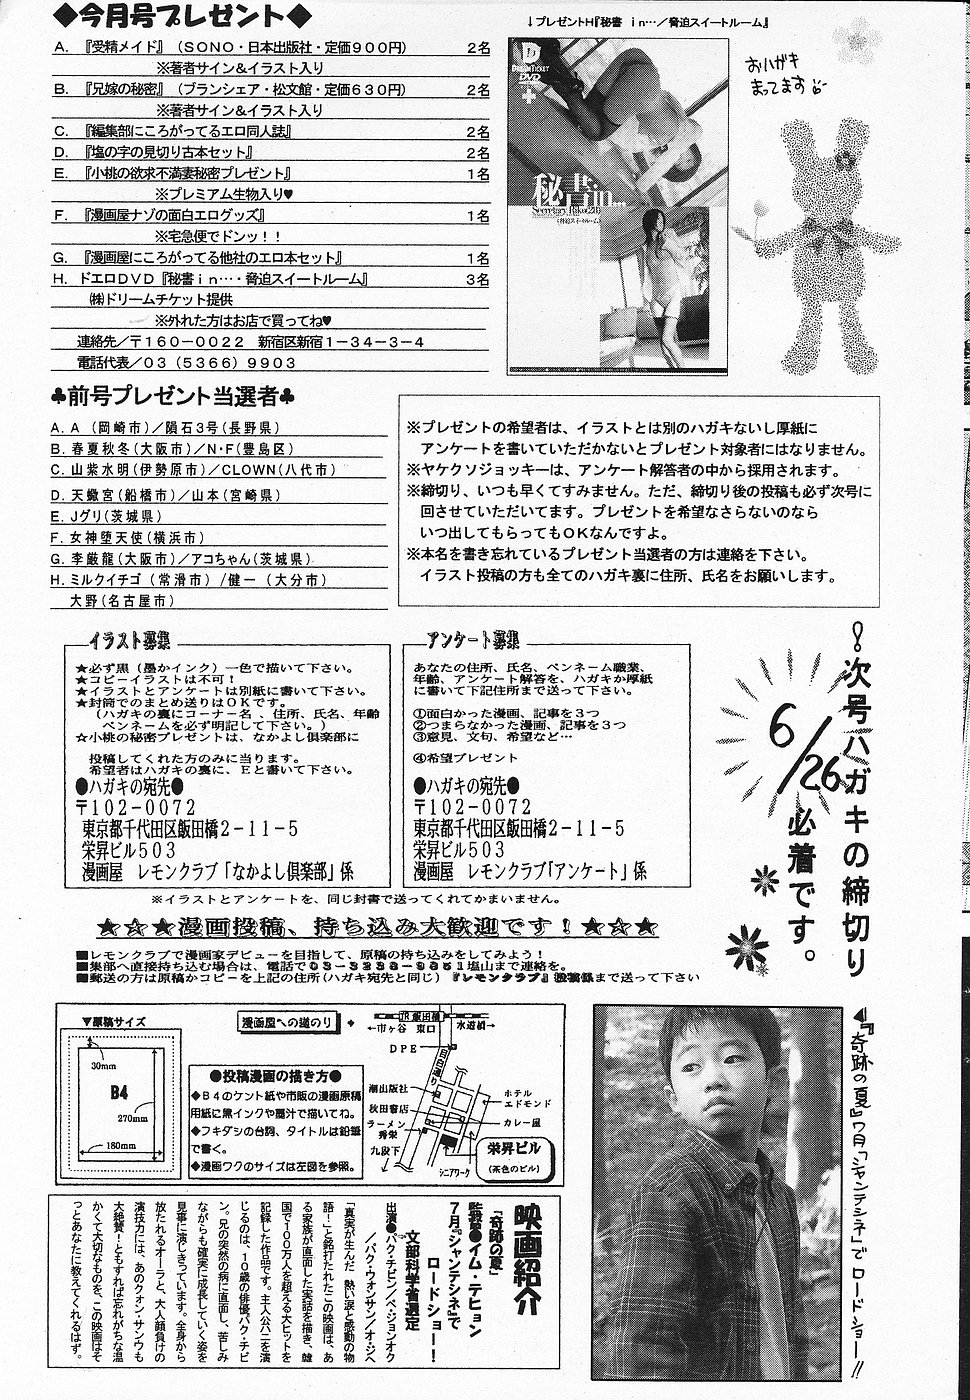 ◆今月号プレゼント◆
A.『受精メイド』(SONO・日本出版社・定価900円) 2名
※著者サイン&イラスト入り
B.『兄嫁の秘密』(ブランシェア・松文館・定価630円) 2名
※著者サイン&イラスト入り
C.『編集部にころがってるエロ同人誌』 2名
D.『塩の字の見切り古本セット』 2名
E.『小桃の欲求不満妻秘密プレゼント』 1名
※プレミアム生物入り♥
F.『漫画屋ナゾの面白エログッズ』 1名
※宅急便でドンッ!!
G.『漫画屋にころがってる他社のエロ本セット』 1名
H.ドエロDVD『秘書in…・脅迫スイートルーム』 3名
㈱ドリームチケット提供
※外れた方はお店で買ってね♥
連絡先/〒160-0022 新宿区新宿1-34-3-4
電話代表/03(5366)9903
↓プレゼントH『秘書 in…/脅迫スイートルーム』
D
DREAM TICKET
DVD
秘書in...
Secretary
(脅迫スイートルーム)
おハガキ
まってます
♣前号プレゼント当選者♣
A.A(岡崎市)/隕石3号(長野県)
B.春夏秋冬(大阪市)/N・F(豊島区)
C.山紫水明(伊勢原市)/CLOWN(八代市)
D.天蠍宮(船橋市)/山本(宮崎県)
E.Jグリ(茨城県)
F.女神堕天使(横浜市)
G.李厳龍(大阪市)/アコちゃん(茨城県)
H.ミルクイチゴ(常滑市)/健一(大分市)
大野(名古屋市)
※プレゼントの希望者は、イラストとは別のハガキないし厚紙に
アンケートを書いていただかないとプレゼント対象者にはなりません。
※ヤケクソジョッキーは、アンケート解答者の中から採用されます。
※締切り、いつも早くてすみません。ただ、締切り後の投稿も必ず次号に
回させていただいてます。プレゼントを希望なさらないのなら
いつ出してもらってもOKなんですよ。
※本名を書き忘れているプレゼント当選者の方は連絡を下さい。
イラスト投稿の方も全てのハガキ裏に住所、氏名をお願いします。
イラスト募集
★必ず黒(墨かインク)一色で描いて下さい。
★コピーイラストは不可!
★イラストとアンケートは別紙に書いて下さい。
★封筒でのまとめ送りはOKです。
(ハガキの裏にコーナー名、住所、氏名、年齢
ペンネームを必ず明記して下さい。)
☆小桃の秘密プレゼントは、なかよし倶楽部に
投稿してくれた方のみに当ります。
希望者はハガキの裏に、Eと書いて下さい。
●ハガキの宛先●
〒102-0072
東京都千代田区飯田橋2-11-5
栄昇ビル503
漫画屋 レモンクラブ「なかよし倶楽部」係
アンケート募集
あなたの住所、氏名、ペンネーム職業、
年齢、アンケート解答を、ハガキか厚紙
に書いて下記住所まで送って下さい。
①面白かった漫画、記事を3つ
②つまらなかった漫画、記事を3つ
③意見、文句、希望など…
④希望プレゼント
●ハガキの宛先●
〒102-0072
東京都千代田区飯田橋2-11-5
栄昇ビル503
漫画屋 レモンクラブ「アンケート」係
次号ハガキの締切り
6/26
必着です。!
※イラストとアンケートを、同じ封書で送ってくれてかまいません。
☆☆★漫画投稿、持ち込み大歓迎です!★☆☆
■レモンクラブで漫画家デビューを目指して、原稿の持ち込みをしてみよう!
■集部へ直接持ち込む場合は、電話で塩山まで連絡を。
■郵送の方は原稿かコピーを上記の住所(ハガキ宛先と同じ)『レモンクラブ』投稿係まで送って下さい
▼原稿サイズ
30mm
B4
270mm
180mm
漫画屋への道のり
●投稿漫画の描き方●
◆B4のケント紙や市販の漫画原稿
用紙に黒インクや墨汁で描いてね。
◆フキダシの台詞、タイトルは鉛筆
で書く。
◆漫画ワクのサイズは左図を参照。
JR飯田橋
←市ヶ谷 東口 水道橋→
DPE
目白通り
潮出版社
秋田書店
ラーメン
秀栄
九段下
ホテル
エドモンド
カレー屋
栄昇ビル
(茶色のビル)
シニアワーク
映画紹介
『奇跡の夏』
監督●イム・テヒョン
7月『シャンテシネ』で
ロードショー!
文部科学省選定
出演●パク・チビン/ペ・ジョンオク
/パク・ウォンサン/オ・ジヘ
「真実が生んだ、熱い涙と感動の物
語!」と銘打たれたこの映画は、あ
る家族が直面した実話を描き、韓
国で100万人を超える大ヒットを
記録した作品です。主人公ハニを演
じるのは、10歳の俳優パク・チビ
ン。兄の突然の病に直面し、苦しみ
ながらも確実に成長していく姿を
見事に演じきっています。全身から
放たれるオーラと、大人顔負けの
演技力には、あのクォン・サンウも
大絶賛!ともすれば忘れがちな温
かくて大切なものを、この映画はそ
っとあなたに教えてくれるはず。
◀『奇跡の夏』7月「シャンテシネ」でロードショー!!